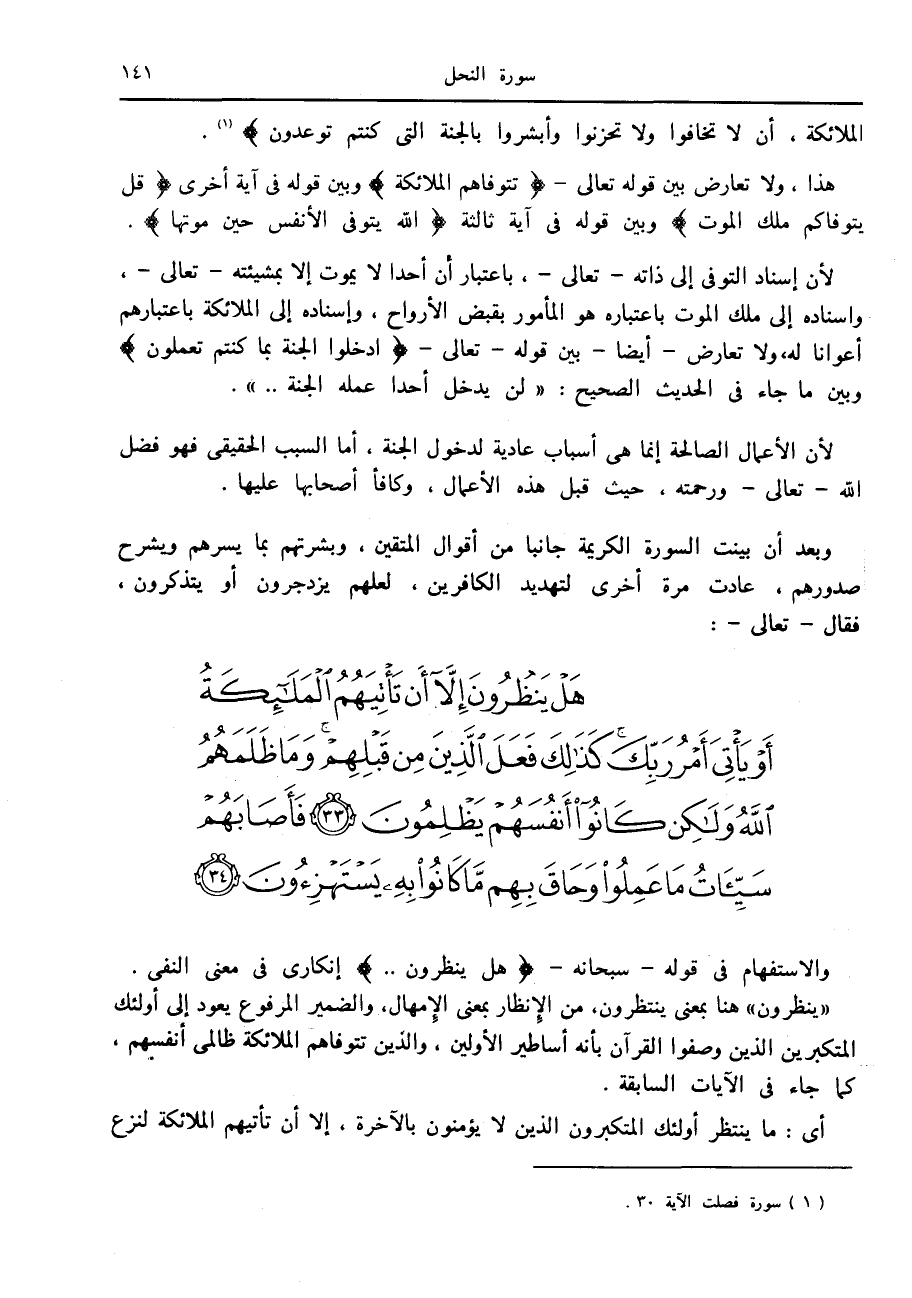 سورة النحل ١٤١
الملائكة ، أن لا تخافوا ولا تحزنوا وأبشروا بالجنة التى كنتم توعدون ﴾ (١) .
هذا ، ولا تعارض بين قوله تعالى – ﴿ تتوفاهم الملائكة ﴾ وبين قوله فى آية أخرى ﴿ قل
يتوفاكم ملك الموت ﴾ وبين قوله فى آية ثالثة ﴿ الله يتوفى الأنفس حين موتها ﴾ .
لأن إسناد التوفى إلى ذاته – تعالى – ، باعتبار أن أحدا لا يموت إلا بمشيئته – تعالى – ،
واسناده إلى ملك الموت باعتباره هو المأمور بقبض الأرواح ، وإسناده إلى الملائكة باعتبارهم
أعوانا له، ولا تعارض – أيضا – بين قوله – تعالى – ﴿ ادخلوا الجنة بما كنتم تعملون ﴾
وبين ما جاء فى الحديث الصحيح : « لن يدخل أحدا عمله الجنة .. » .
لأن الأعمال الصالحة إنما هى أسباب عادية لدخول الجنة ، أما السبب الحقيقى فهو فضل
الله – تعالى – ورحمته ، حيث قبل هذه الأعمال ، وكافأ أصحابها عليها .
وبعد أن بينت السورة الكريمة جانبا من أقوال المتقين ، وبشرتهم بما يسرهم ويشرح
صدورهم ، عادت مرة أخرى لتهديد الكافرين ، لعلهم يزدجرون أو يتذكرون ،
فقال – تعالى – :
هَلْ يَنظُرُونَ إِلَّآ أَن تَأْتِيَهُمُ ٱلْمَلَٰٓئِكَةُ
أَوْ يَأْتِىَ أَمْرُ رَبِّكَ ۚ كَذَٰلِكَ فَعَلَ ٱلَّذِينَ مِن قَبْلِهِمْ ۚ وَمَا ظَلَمَهُمُ
ٱللَّهُ وَلَٰكِن كَانُوٓا۟ أَنفُسَهُمْ يَظْلِمُونَ ٣٣ فَأَصَابَهُمْ
سَيِّـَٔاتُ مَا عَمِلُوا۟ وَحَاقَ بِهِم مَّا كَانُوا۟ بِهِۦ يَسْتَهْزِءُونَ ٣٤
والاستفهام فى قوله – سبحانه – ﴿ هل ينظرون .. ﴾ إنكارى فى معنى النفى .
«ينظرون» هنا بمعنى ينتظرون، من الإنظار بمعنى الإمهال، والضمير المرفوع يعود إلى أولئك
المتكبرين الذين وصفوا القرآن بأنه أساطير الأولين ، والذين تتوفاهم الملائكة ظالمى أنفسهم ،
كما جاء فى الآيات السابقة .
أى : ما ينتظر أولئك المتكبرون الذين لا يؤمنون بالآخرة ، إلا أن تأتيهم الملائكة لنزع
( ١ ) سورة فصلت الآية ٣٠ .